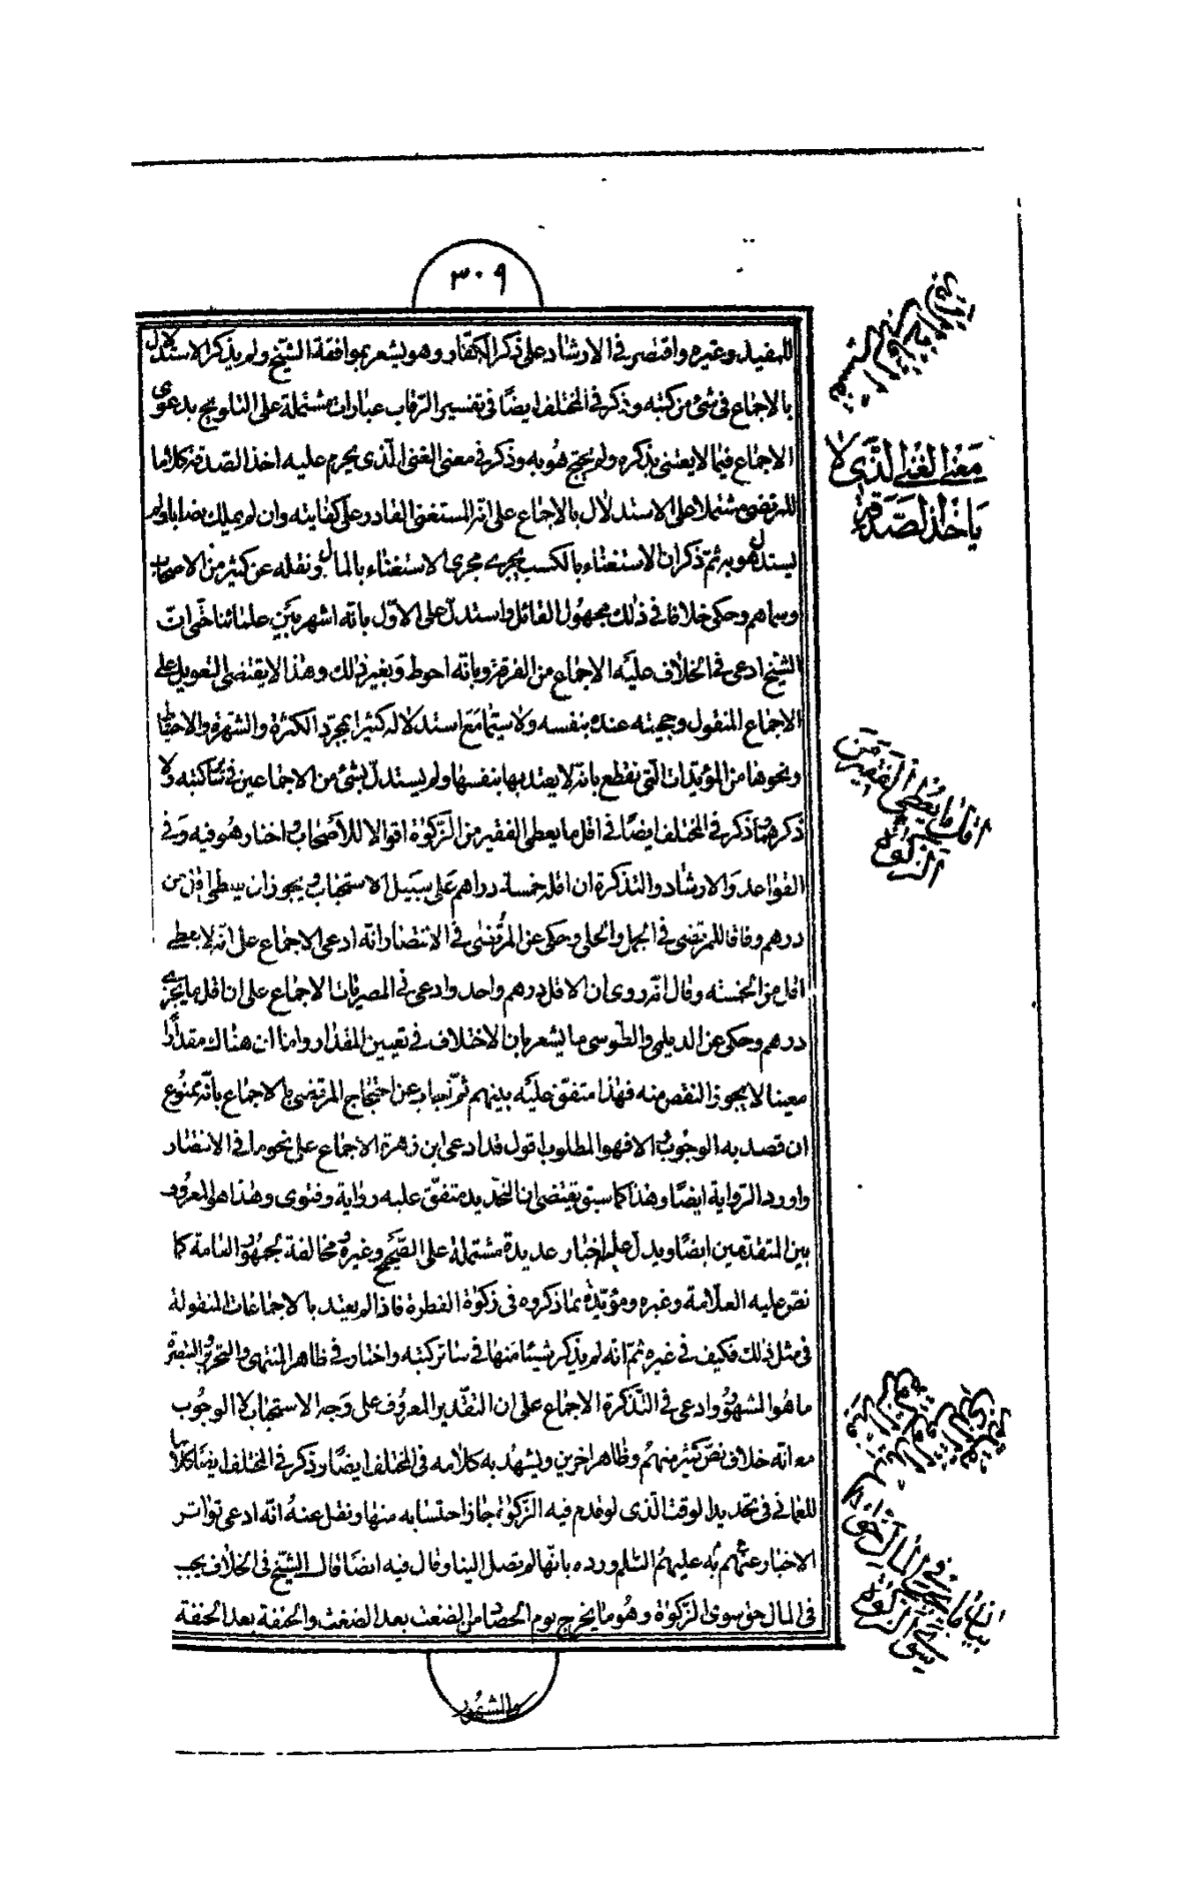 ٣٠٩
للمفيد وغيره واقتصر في الارشاد على ذكر الكفار وهو يشعر بموافقة الشيخ ولم يذكر الاستدلال
بالاجماع في شئ من كتبه وذكر في المختلف ايضا في تفسير الرقاب عبارات مشتملة على التلويح بدعوى
الاجماع فيما لا يعتنى بذكره ولم يحتج هو به وذكر في معنى الغنى الذى يحرم عليه اخذ الصدقة كلاما
للمرتضى مشتملا على الاستدلال بالاجماع على انه المستغنى القادر على كفايته وان لم يملك نصابا ولم
يستدل هو به ثم ذكر ان الاستغناء بالكسب يجرى مجرى الاستغناء بالمال ونقله عن كثير من الاصحاب
وسماهم وحكى خلافا في ذلك مجهول القائل واستدل على الاول بانه اشهر بين علمائنا حتى ات
الشيخ ادعى في الخلاف عليه الاجماع من الفرقة وبانه احوط وبغير ذلك وهذا لا يقتضى التعويل على
الاجماع المنقول وحجيته عنده بنفسه ولا سيما مع استدلاله كثيرا بمجرد الكثرة والشهرة والاحتياط
ونحوها من المؤيدات التى نقطع بانه لا يعتد بها بنفسها ولم يستدل بشئ من الاجماعين في سائر كتبه ولا
ذكرهما وذكر في المختلف ايضا في اقل ما يعطى الفقير من الزكوة اقوالا للاصحاب واختار هو فيه وفي
القواعد والارشاد والتذكرة ان اقله خمسة دراهم على سبيل الاستحباب ويجوز ان يعطى اقل من
درهم وفاقا للمرتضى في الجمل والحلى وحكى عن المرتضى في الانتصار انه ادعى الاجماع على انه لا يعطى
اقل من الخمسة وقال انه روى ان الاقل درهم واحد وادعى في المصريات الاجماع على ان اقل ما يجزى
درهم وحكى عن الديلمى والطوسى ما يشعر بان الاختلاف في تعيين المقدار واما ان هناك مقدارا
معينا لا يجوز النقص منه فهذا متفق عليه بينهم ثم اجاب عن احتجاج المرتضى بالاجماع بانه ممنوع
ان قصد به الوجوب والا فهو المطلوب اقول قد ادعى ابن زهرة الاجماع على نحو ما في الانتصار
واورد الرواية ايضا وهذا كما سبق يقتضى ان التحديد متفق عليه رواية وفتوى وهذا هو المعروف
بين المتقدمين ايضا ويدل عليه اخبار عديدة مشتملة على الصحيح وغيره ومخالفة لجمهور العامة كما
نص عليه العلامة وغيره ومؤيدة بما ذكروه في زكوة الفطرة فاذا لم يعتد بالاجماعات المنقولة
في مثل ذلك فكيف في غيره ثم انه لم يذكر شيئا منها في سائر كتبه واختار في ظاهر المنتهى والتحرير والتبصرة
ما هو المشهور وادعى في التذكرة الاجماع على ان التقدير المعروف على وجه الاستحباب لا الوجوب
مع انه خلاف نص كثير منهم وظاهر اخرين ويشهد به كلامه في المختلف ايضا وذكر في المختلف ايضا كلاما
للعمانى في تحديد الوقت الذى لو قدم فيه الزكوة جاز احتسابه منها ونقل عنه انه ادعى تواتر
الاخبار عنهم به عليهم السلم ورده بانها لم تصل الينا وقال فيه ايضا قال الشيخ في الخلاف يجب
في المال حق سوى الزكوة وهو ما يخرج يوم الحصاد من الضغث بعد الضغث والحفنة بعد الحفنة
معنى الغنى الذى لا
ياخذ الصدقة
اقل ما يعطى الفقير من
الزكوة
بيان ما يجب في المال حق
سوى الزكوة